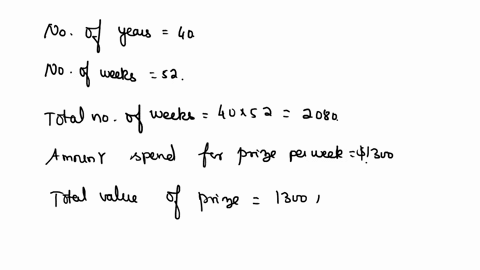 No. of years = 40
No. of weeks = 52.
Total no. of weeks = 40 x 52 = 2080.
Amount spend for prize per week = $1300
Total value of prize = 1300 ,